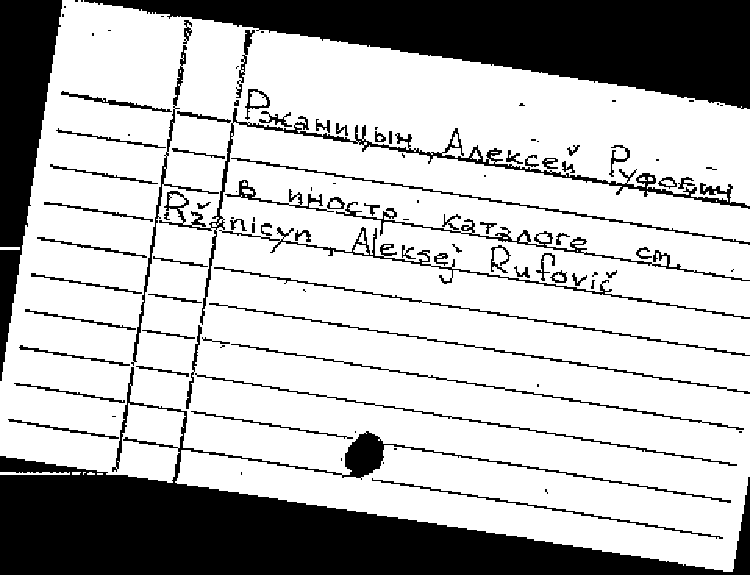 Ржаницын, Алексей Руфович
В иностр. каталоге ст.
Ržanicyn, Aleksej Rufovič